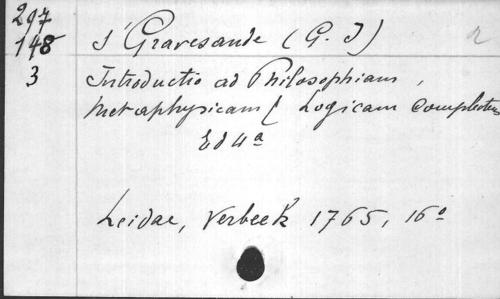 297
148
3
s' Gravesande (G. J)
2
Introductio ad Philosophiam,
metaphysicam & Logicam complectens
Ed 4a
Leidae, Verbeek 1765, 16o